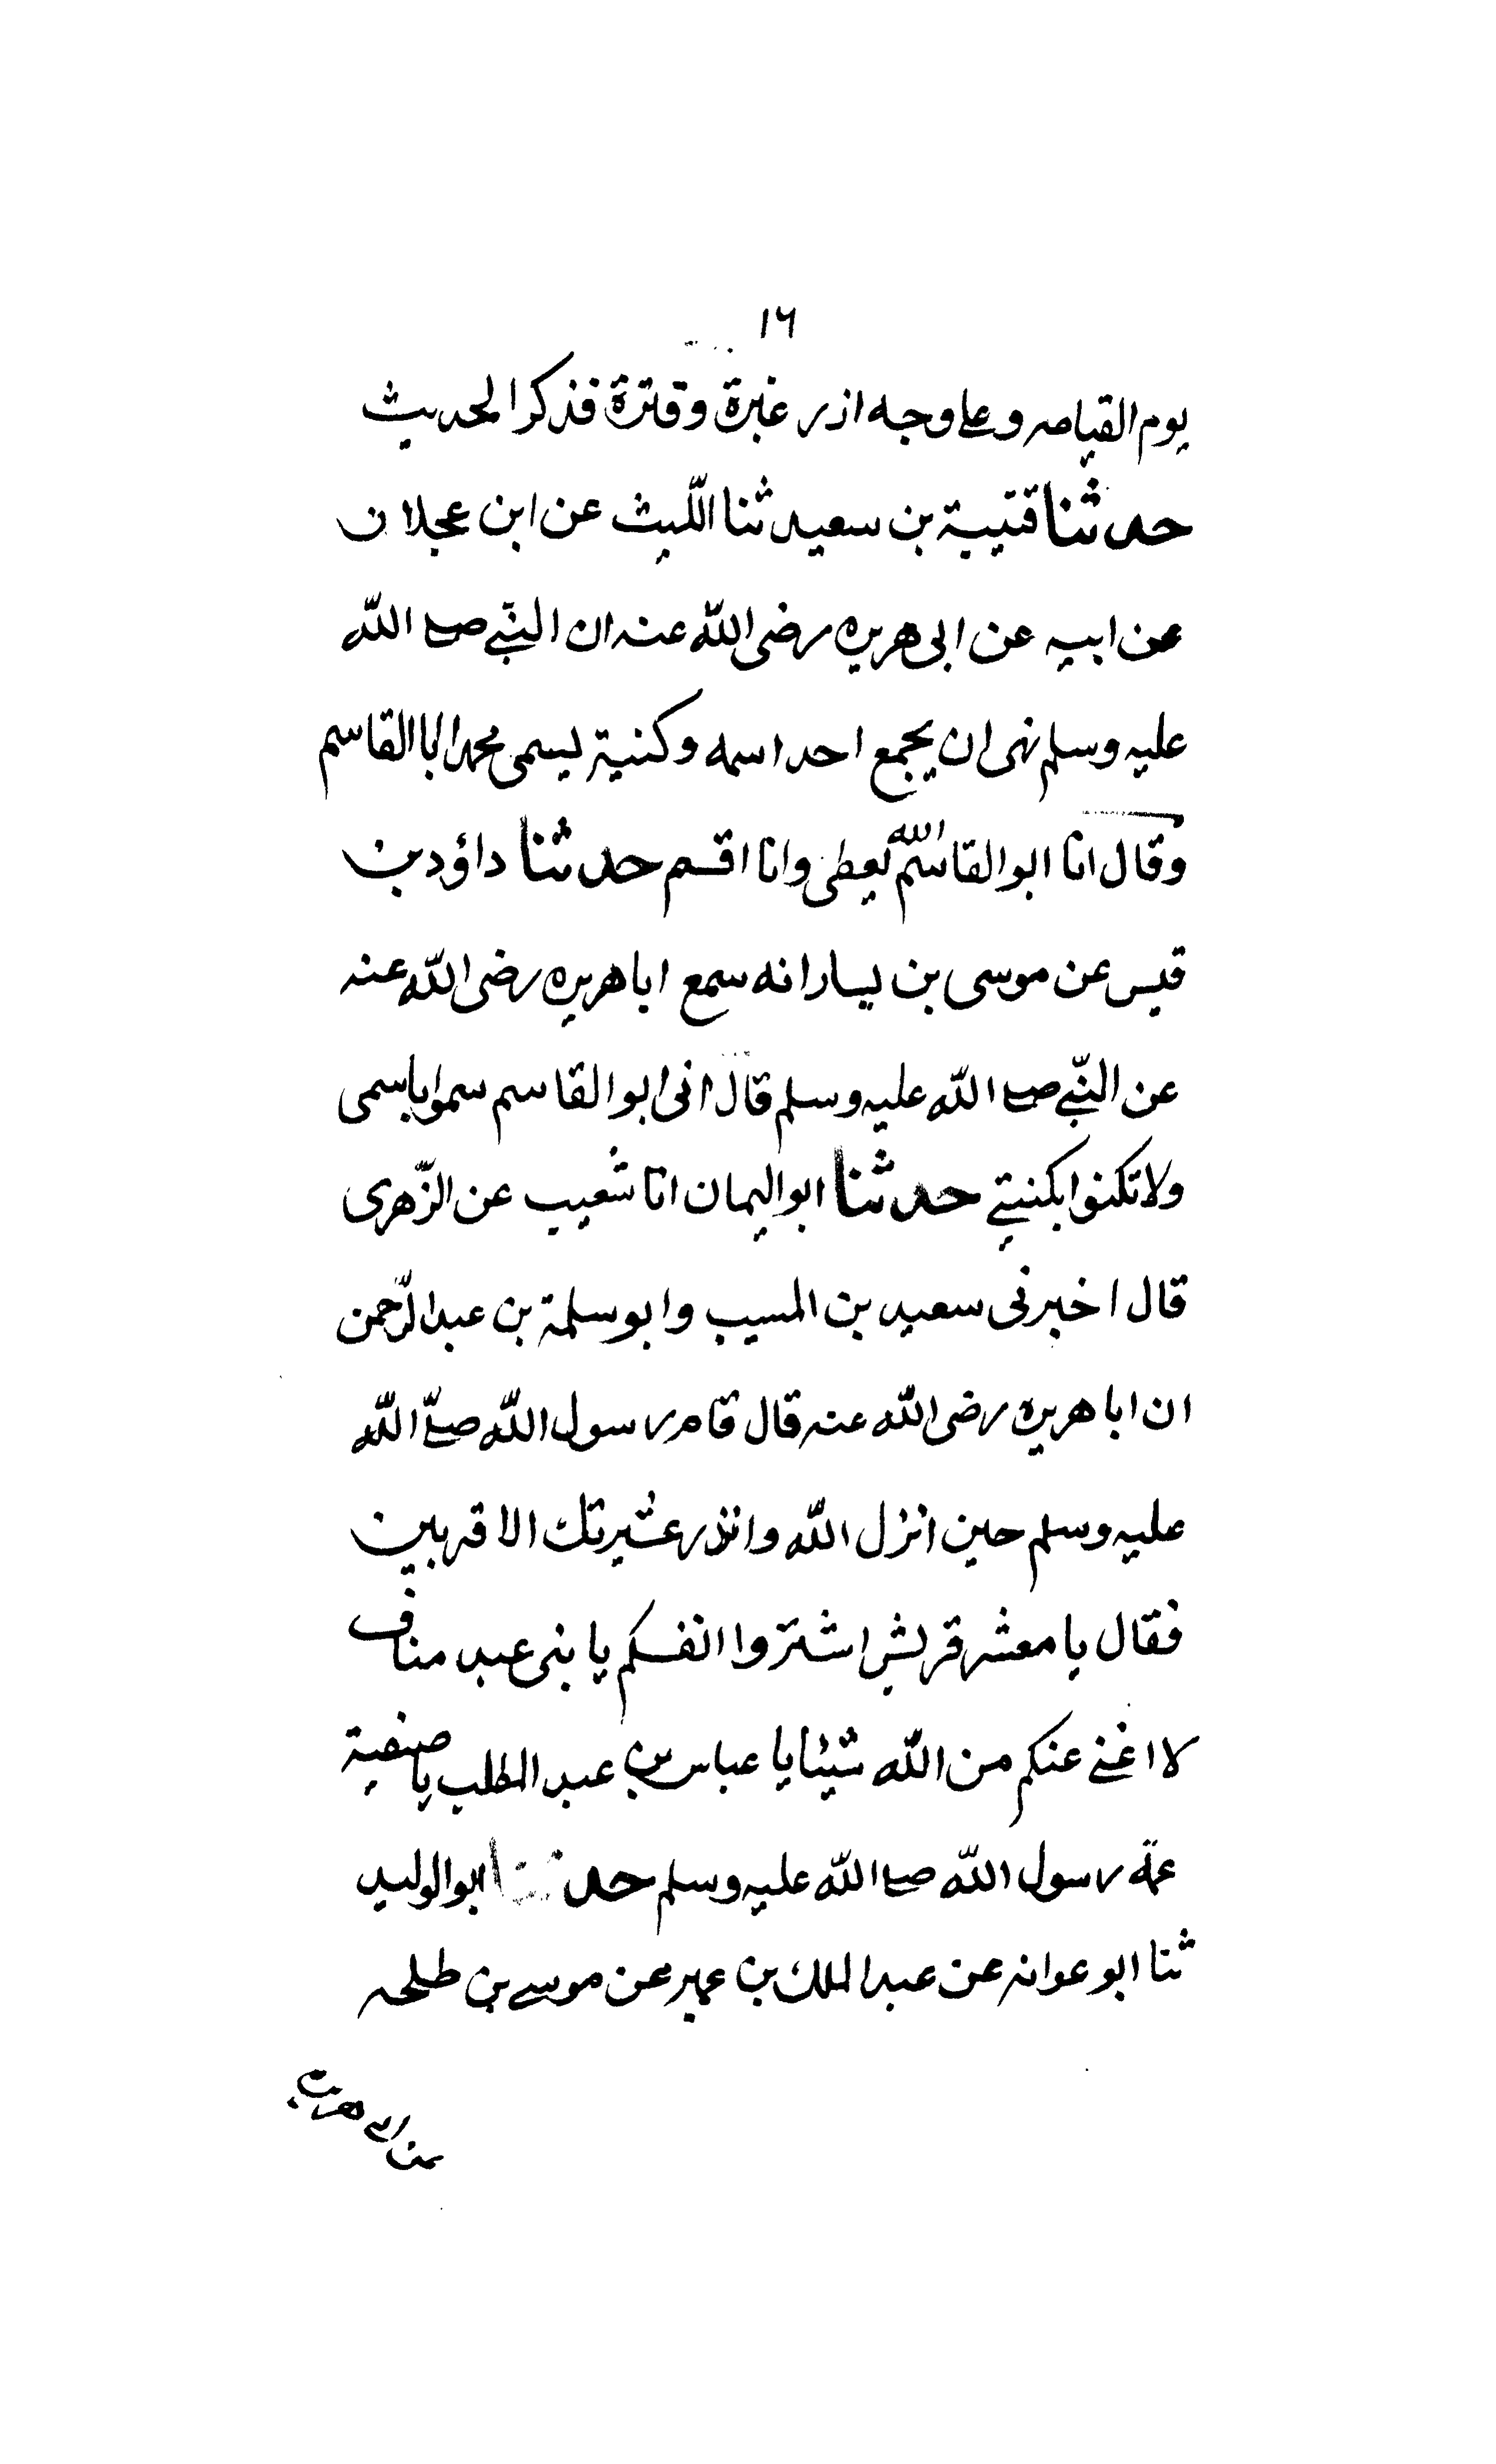 ١٦
يوم القيامه وعلى وجه ازر غبرة وقترة فذكر الحديث
حدثنا قتيبة بن سعيد ثنا اللّيث عن ابن عجلان
عن ابيه عن ابى هريره رضى اللّه عنه ان النبّى صلى اللّه
عليه وسلم نهى ان يجمع احد اسمه وكنية يسمى محمد ابا القاسم
وقال انا ابو القاسم اللّه يعطى وانا اقسم حدثنا داؤد بن
قيس عن موسى بن يسار انه سمع ابا هريره رضى اللّه عنه
عن النبّى صلى اللّه عليه وسلم قال انى ابو القاسم سموا باسمى
ولا تكنوا بكنيتى حدثنا ابو اليمان انا شعيب عن الزّهرى
قال اخبرنى سعيد بن المسيب وابو سلمة بن عبد الرّحمن
ان ابا هريره رضى اللّه عنه قال قام رسول اللّه صلّى اللّه
عليه وسلم حين انزل اللّه وانذر عشيرتك الاقربين
فقال يا معشر قريش اشتروا انفسكم يا بنى عبد مناف
لا اغنى عنكم من اللّه شيئا يا عباس بن عبد المطلب يا صفية
عمة رسول اللّه صلى اللّه عليه وسلم حدثنا ابو الوليد
ثنا ابو عوانه عن عبد الملك بن عمير عن موسى بن طلحه
عن ابى هريرة